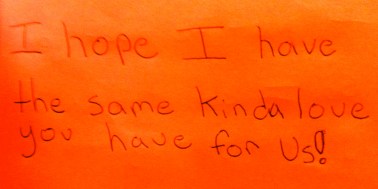 I hope I have
the same kinda love
you have for us!